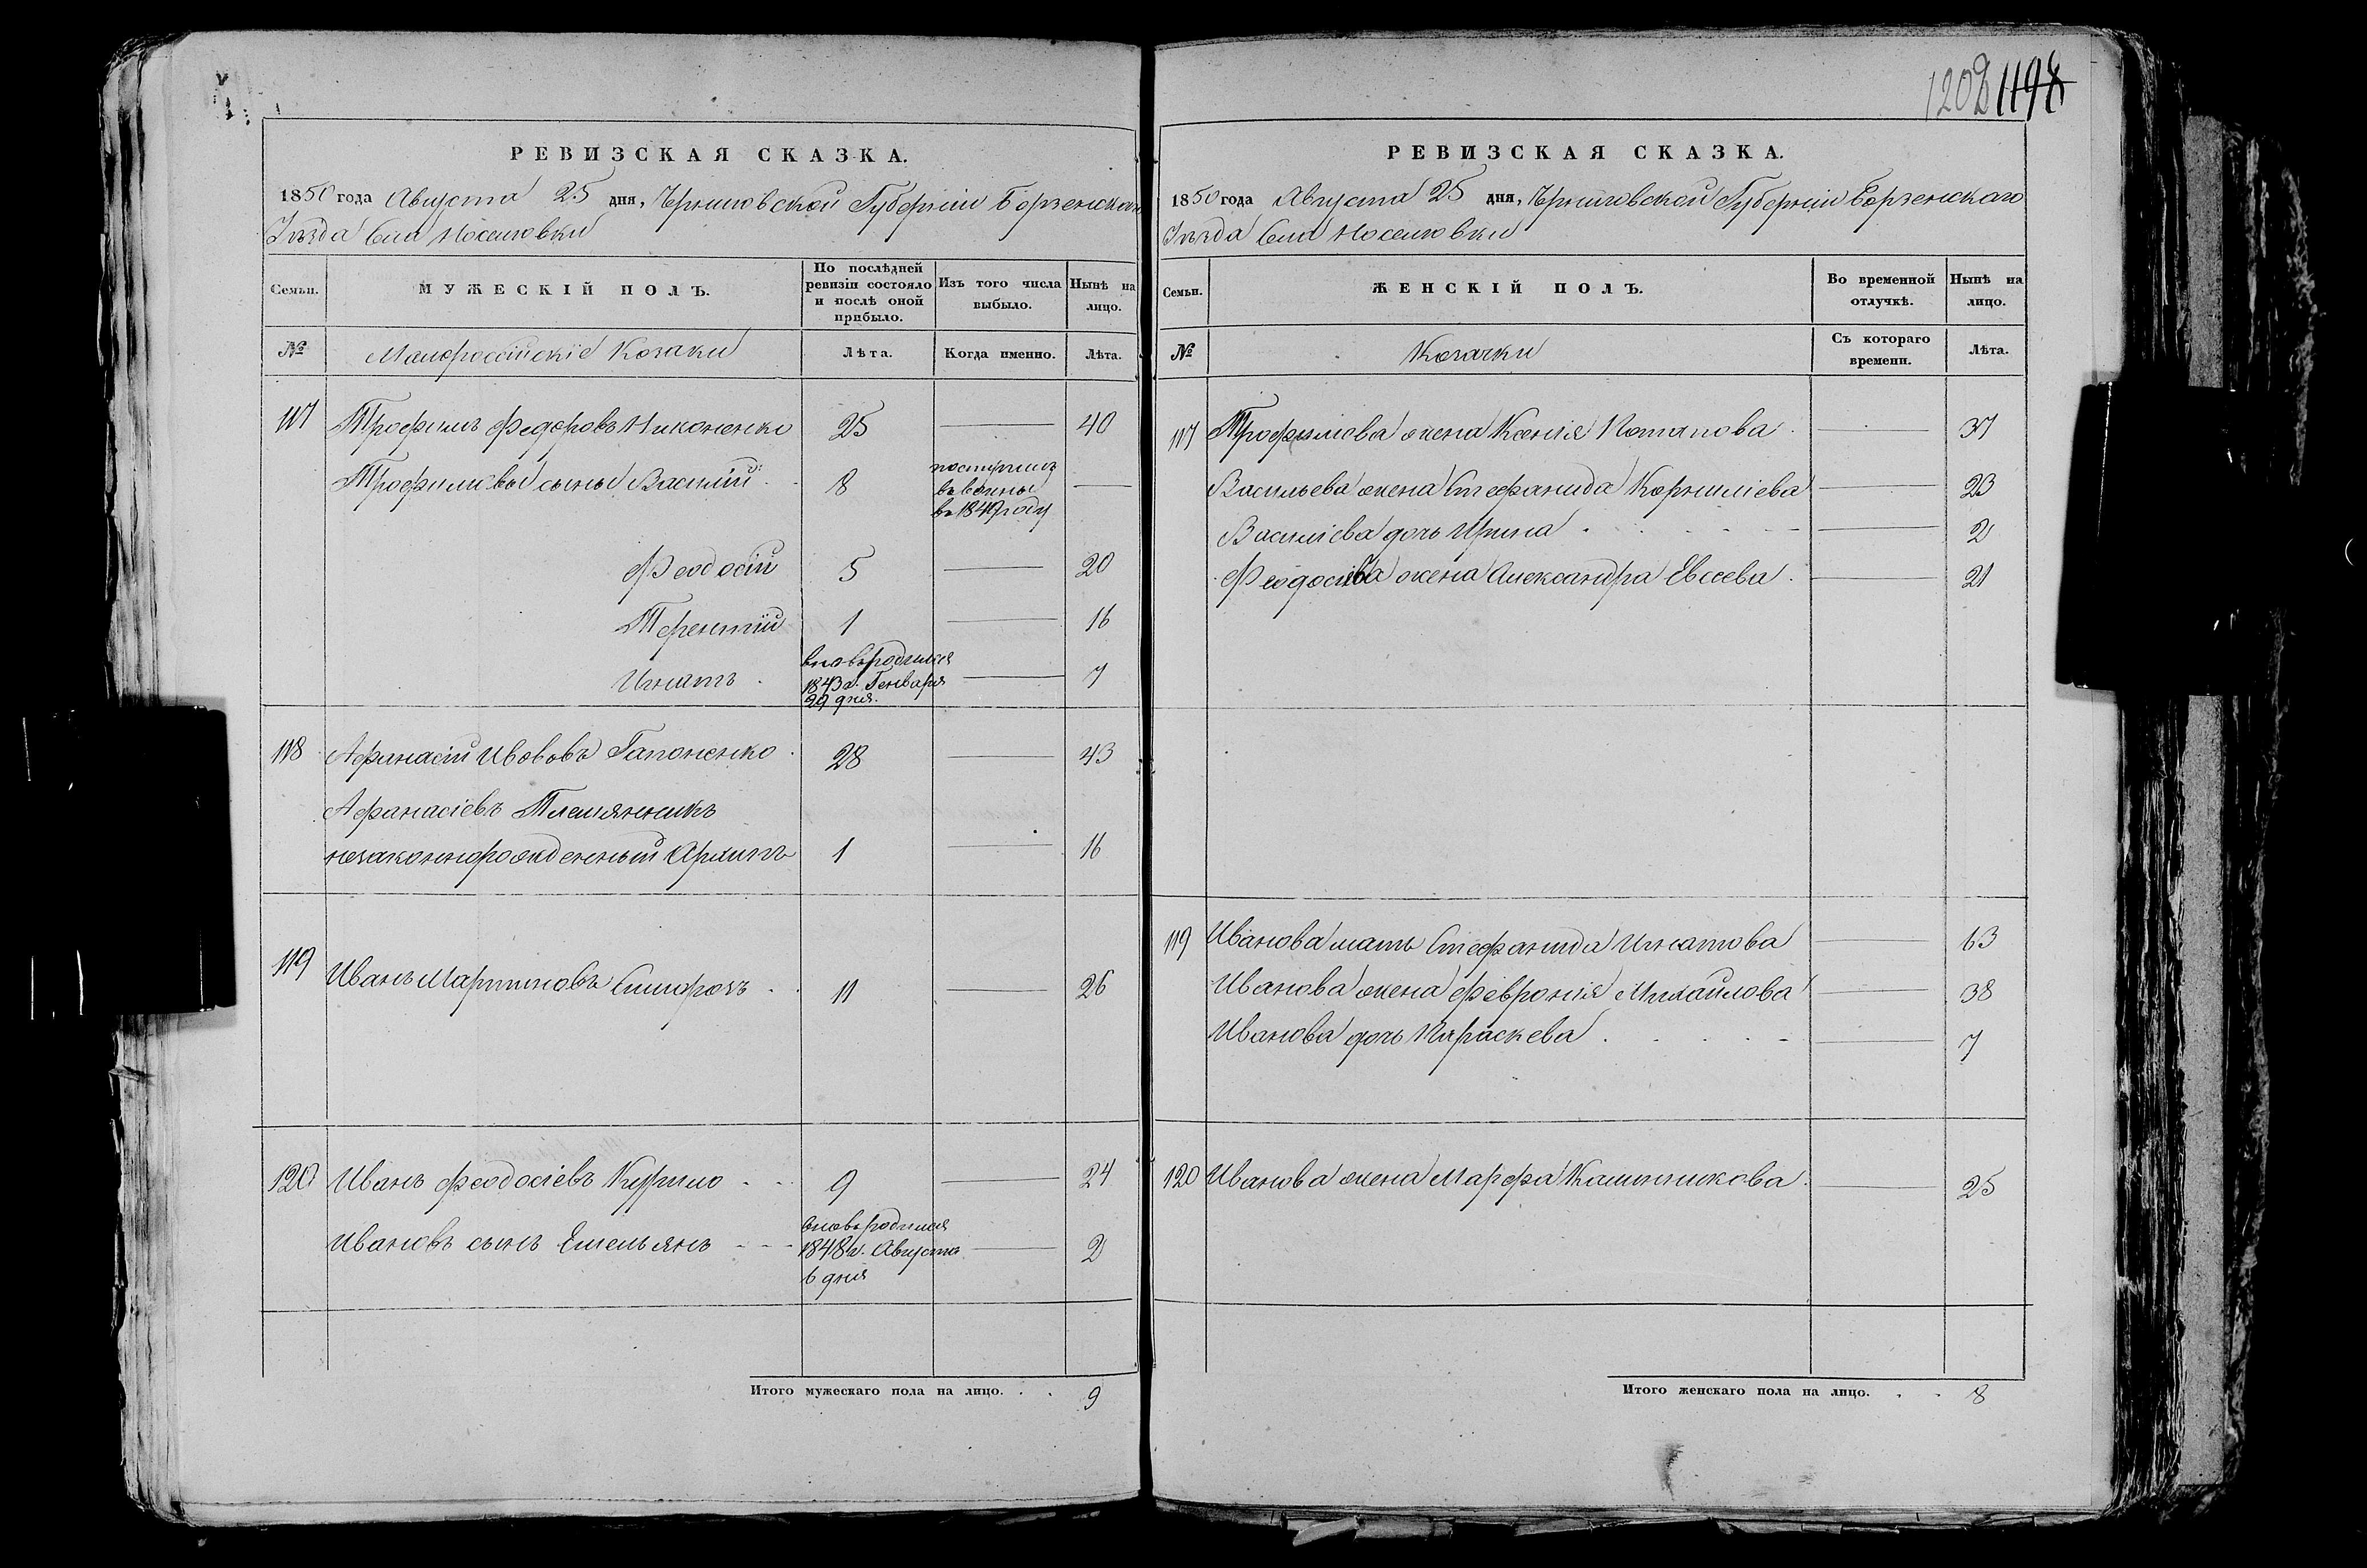 1202 1198
РЕВИЗСКАЯ СКАЗКА.
1850 года Августа 25 дня, Черниговской Губерніи Борзенскаго
Уѣзда Села
Семьи.
МУЖЕСКІЙ ПОЛЪ.
По послѣдней ревизіи состояло и послѣ оной прибыло.
Изъ того числа выбыло.
Нынѣ на лицо.
№
Малороссійскіе Козаки
Лѣта.
Когда именно.
Лѣта.
117 Трофимъ Федоровъ Никоненко 25 40
Трофимовы сыны Василій 8 поступилъ
въ
въ 1849 году
Феодосій 5 20
Терентій 1 16
Игнатъ вновь родился 7
1843 г. Генваря
29 дня.
118 Афанасій Ивовъ Гапоненко 28 43
Афанасіевъ Племянникъ
незаконнорожденный Архипъ 1 16
119 Иванъ Мартиновъ 11 26
120 Иванъ Феодосіевъ Курило 9 24
Ивановъ сынъ Емельянъ вновь родился 2
1848 г. Августа
6 дня
Итого мужескаго пола на лицо. . . 9
РЕВИЗСКАЯ СКАЗКА.
1850 года Августа 25 дня, Черниговской Губерніи Борзенскаго
Уѣзда Села
Семьи.
ЖЕНСКІЙ ПОЛЪ.
Во временной отлучкѣ.
Нынѣ на лицо.
№
Козачки
Съ котораго времени.
Лѣта.
117 Трофимова жена Ксенія Потапова 37
Васильева жена Стефанида Корниліева 23
Василіева дочь Ирина 2
Феодосіева жена Александра Евсеева 21
119 Иванова мать Стефанида Игнатова 63
Иванова жена Февронія Михайлова 38
Иванова дочь Параскева 7
120 Иванова жена Марфа 25
Итого женскаго пола на лицо. . . 8